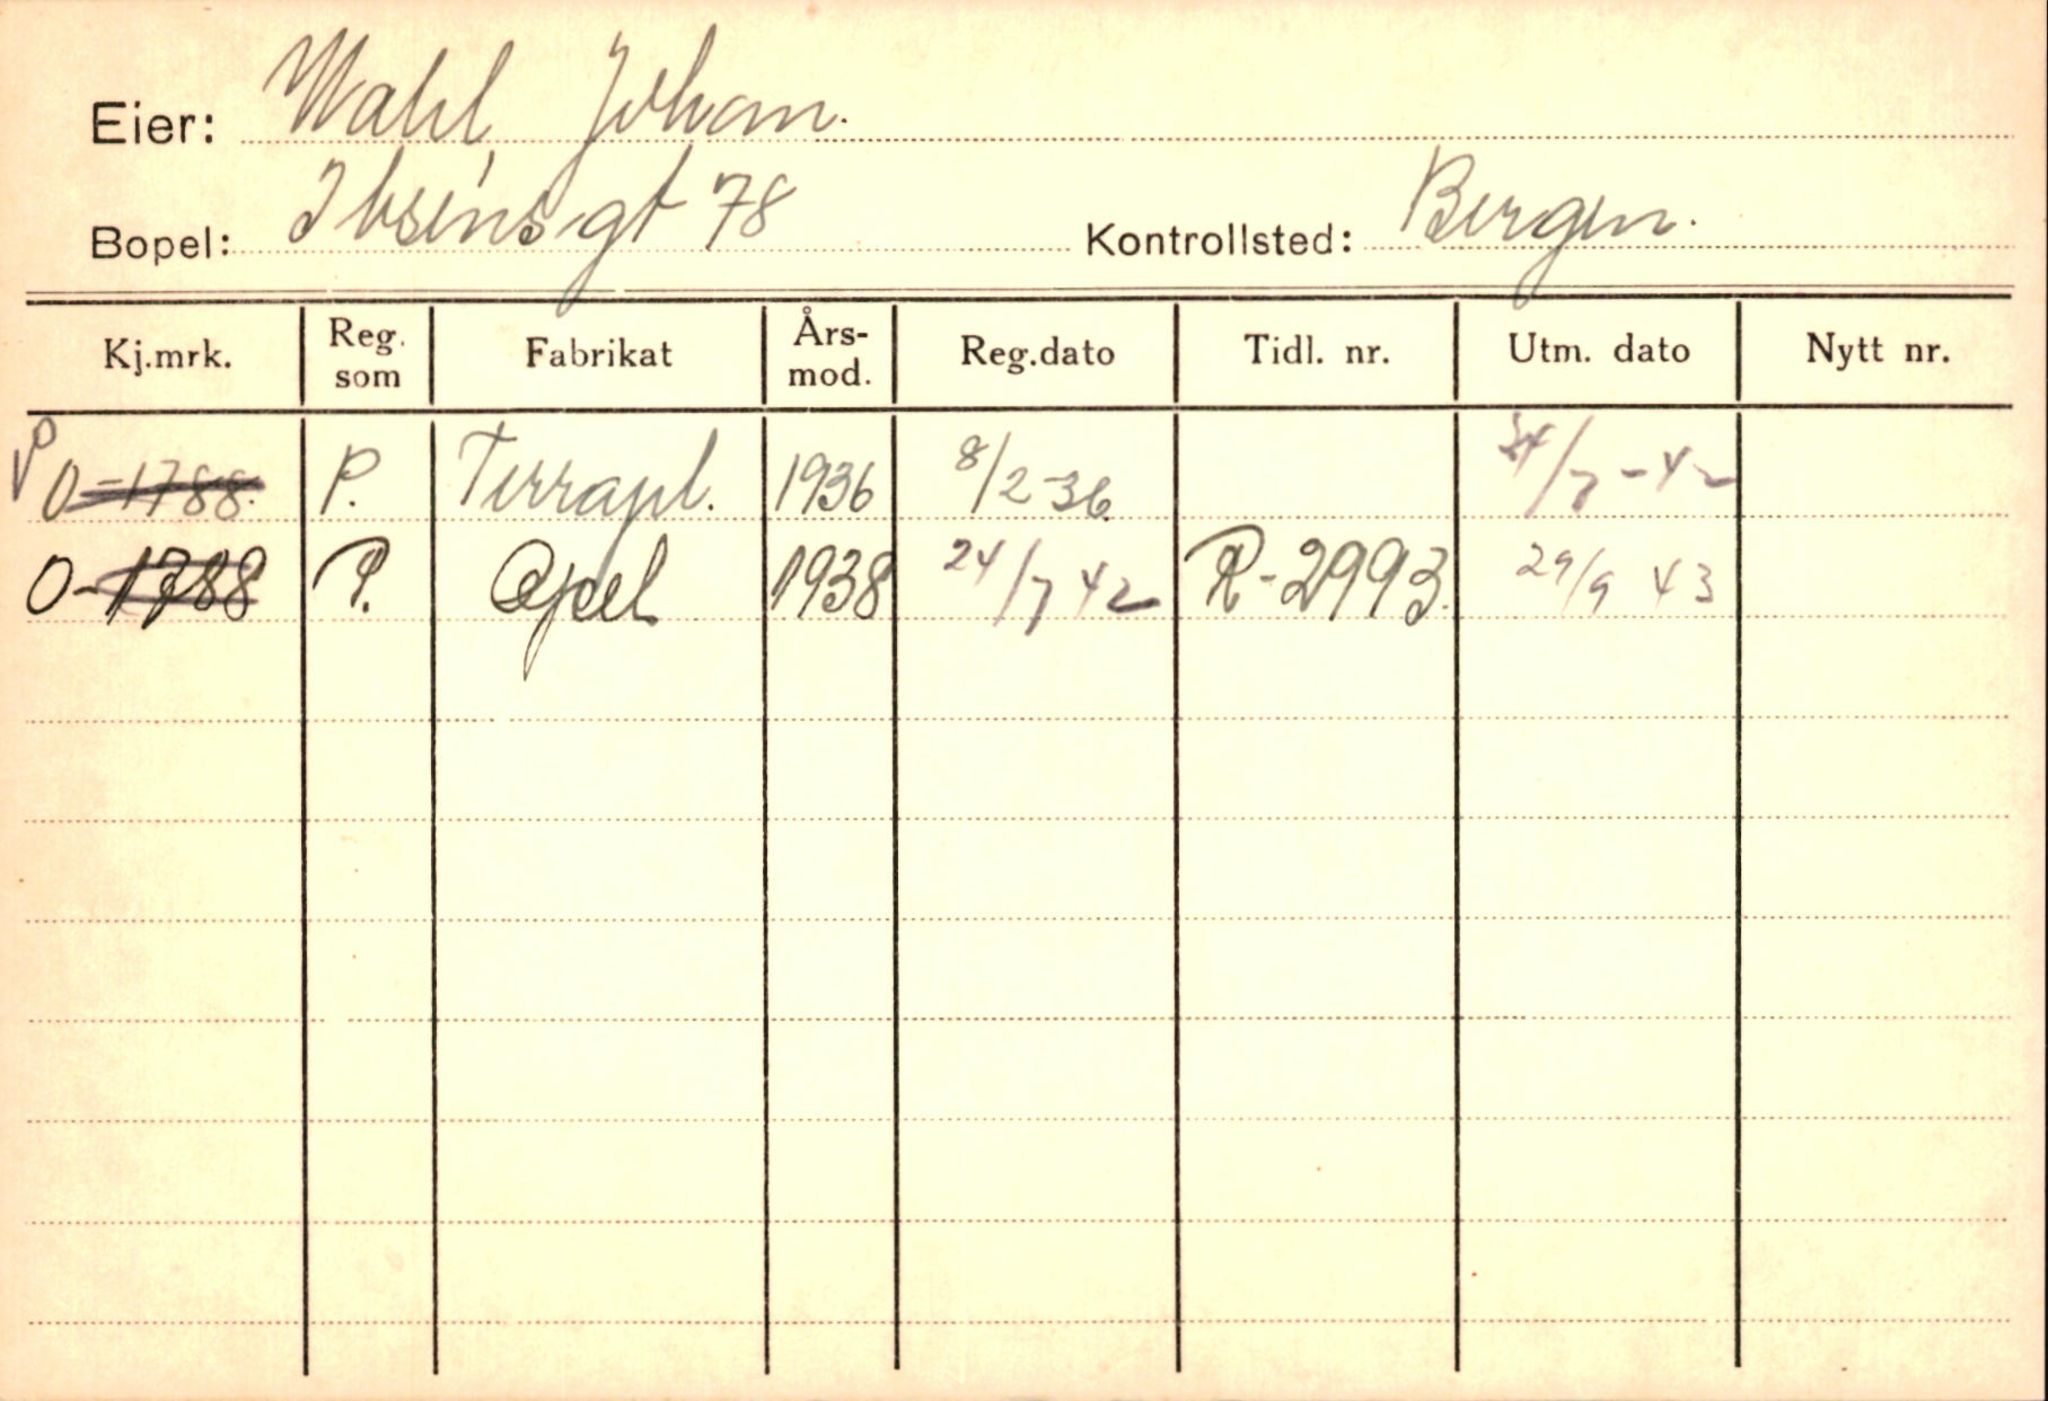 Eier: Wahl Johan.
Bopel: Ibsens gt 78 Kontrollsted: Bergen.
Kj.mrk. Reg. som Fabrikat Års-mod. Reg.dato Tidl. nr. Utm. dato Nytt nr.
O-1788. P. Terrapl. 1936 8/2-36. 24/7-42
O-1788 P. Opel 1938 24/7 42 R-2993. 29/9 43